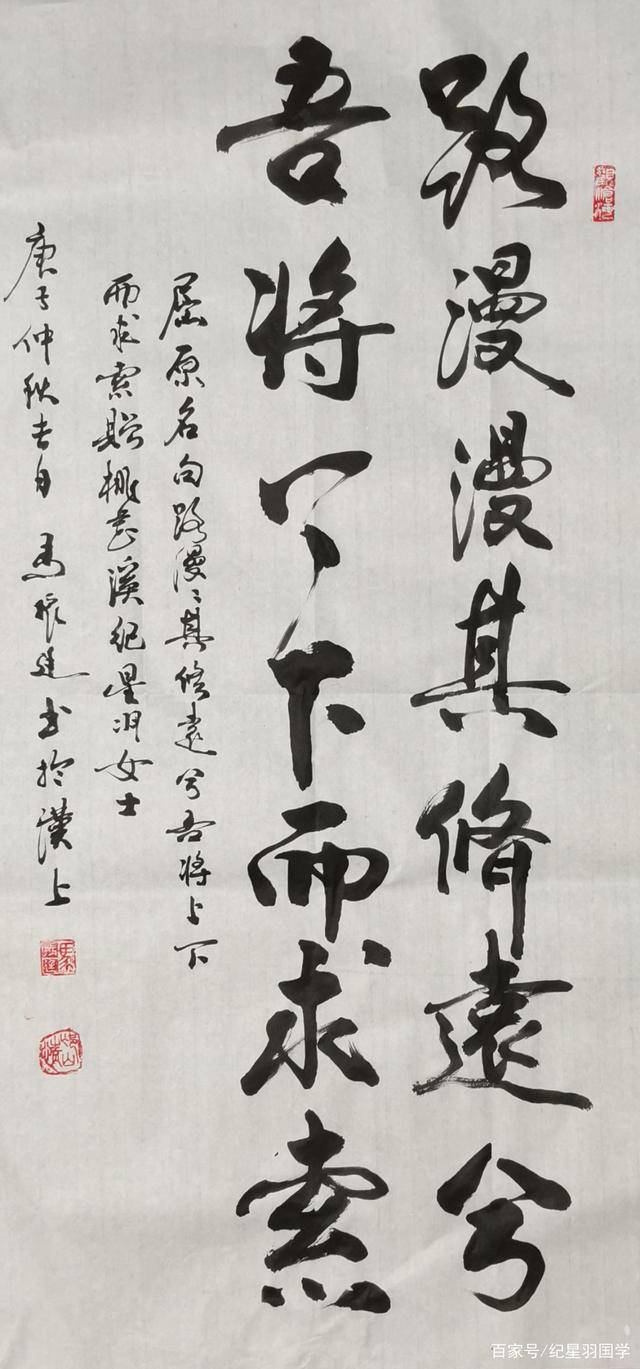 路漫漫其脩遠兮
吾将上下而求索
屈原名句路漫〻其脩遠兮吾将上下
而求索贈桃花溪紀星羽女士
庚子仲秋吉日 馬振書於漢上
百家号/纪星羽国学